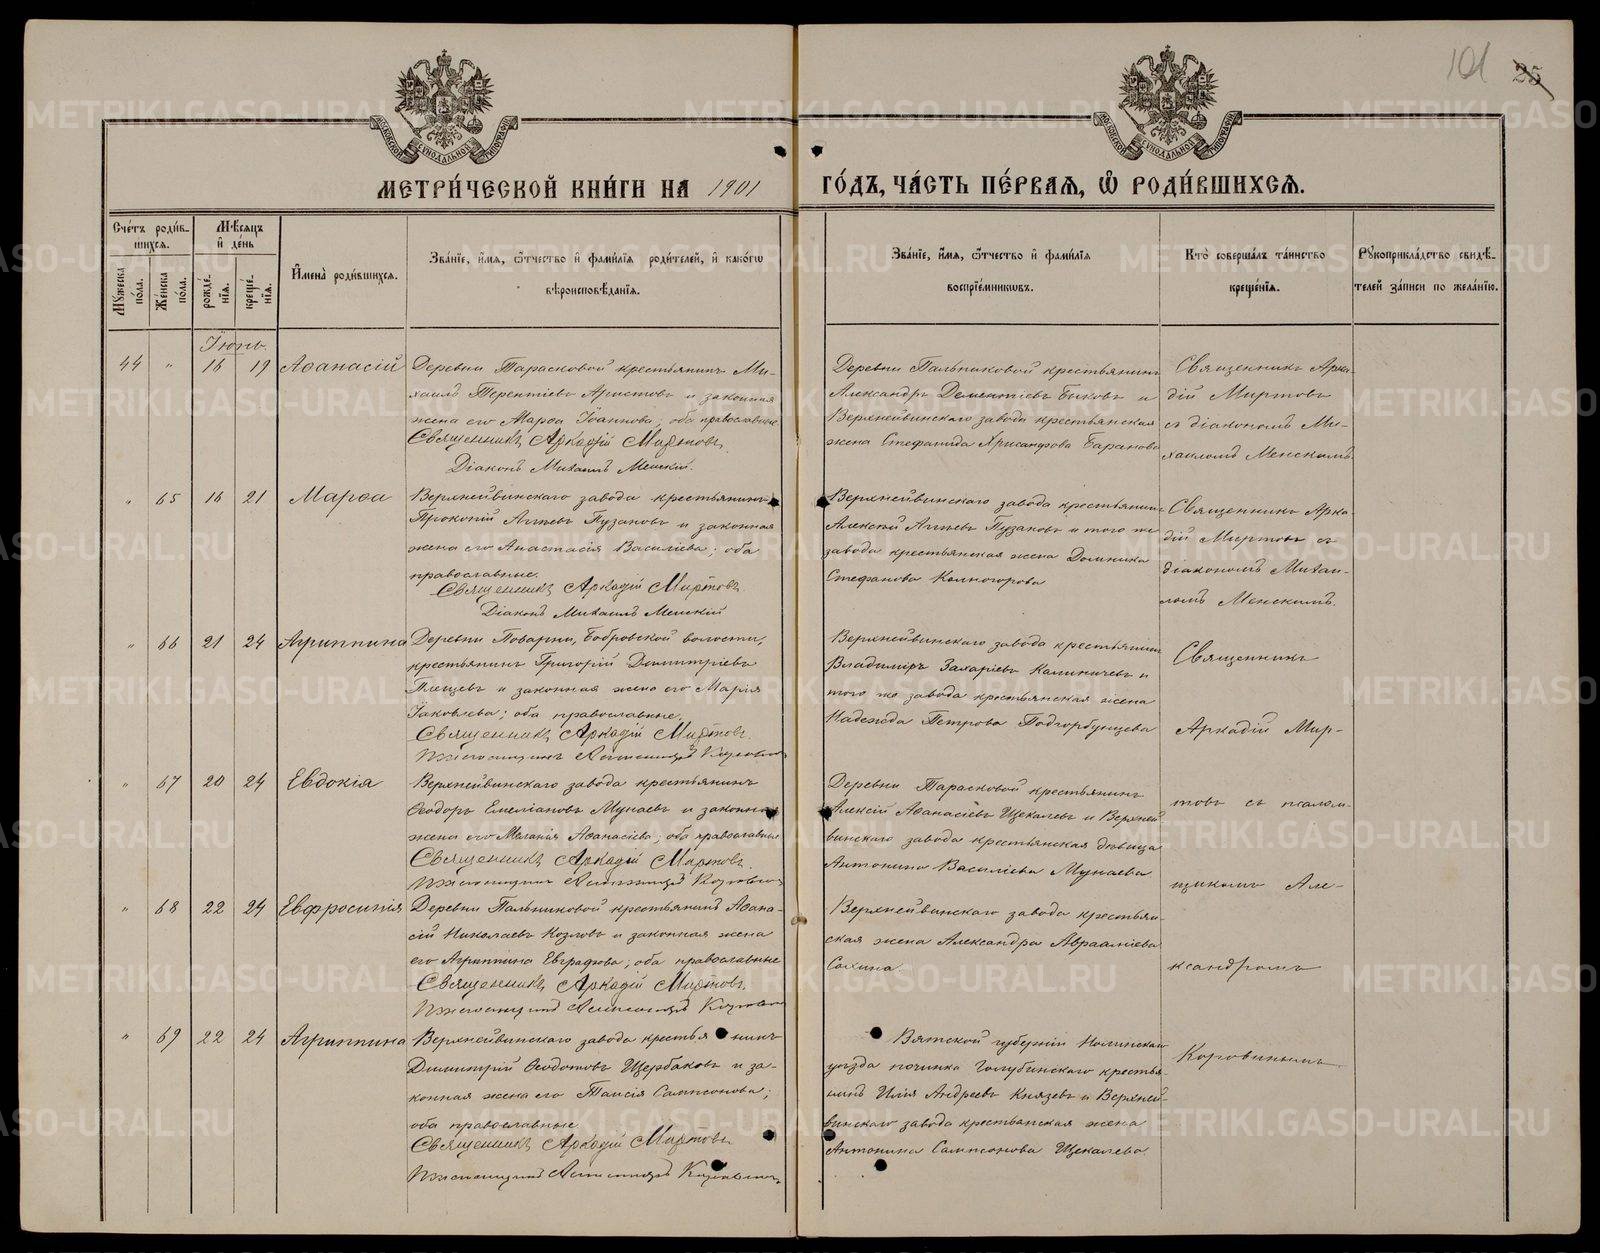 101 25
МЕТРИ́ЧЕСКОЙ КНИ́ГИ НА 1901 ГО́ДЪ, ЧА́СТЬ ПЕ́РВАЯ, Ѽ РОДИ́ВШИХСЯ.
Сче́тъ роди́в-
шихся.
Мꙋжеска по́ла.
Же́нска по́ла.
Мѣ́сяцъ и҆ де́нь
рожде́-
нїя.
креще́-
нїя.
И҆мена̀ роди́вшихся.
Зва́нїе, и҆́мя, ѻ҆́тчество и҆ фами́лїя роди́телей, и҆ како́гѡ
вѣроисповѣ́данїя.
Зва́нїе, и҆́мя, ѻ҆́тчество и҆ фами́лїя
воспрїе́мникѡвъ.
Кто̀ соверша́лъ та́инство
креще́нїя.
Рꙋкоприкла́дство свидѣ́-
телей за́писи по жела́нїю.
Іюнь.
44 " 16 19 Аѳанасій
Деревни Тарасковой крестьянинъ Ми-
хаилъ Терентіевъ Аристовъ и законная
жена его Марѳа Іоаннова; оба православные
Священникъ Аркадій Миртовъ
Діаконъ Михаилъ Менскій.
Деревни Пальниковой крестьянинъ
Александръ Дементіевъ Быковъ и
Верхнейвинскаго завода крестьянская
жена Стефанида Хрисанфова Баранова
Священникъ Арка-
дій Миртовъ
съ діакономъ Ми-
хаиломъ Менскимъ.
" 65 16 21 Марѳа
Верхнейвинскаго завода крестьянинъ
Прокопій Агѣевъ Пузановъ и законная
жена его Анастасія Василіева; оба
православные.
Священникъ Аркадій Миртовъ
Діаконъ Михаилъ Менскій
Верхнейвинскаго завода крестьянинъ
Алексѣй Агѣевъ Пузановъ и того же
завода крестьянская жена Домника
Стефанова Колногорова
Священникъ Арка-
дій Миртовъ съ
діакономъ Михаи-
ломъ Менскимъ.
" 66 21 24 Агриппина
Деревни Поварни, Бобровской волости,
крестьянинъ Григорій Димитріевъ
и законная жена его Марія
Іаковлева; оба православные.
Священникъ Аркадій Миртовъ
Псаломщикъ Александръ Коровинъ
Верхнейвинскаго завода крестьянинъ
Владиміръ Захаріевъ Калиничевъ и
того же завода крестьянская жена
Надежда Петрова Подгорбунцева
Священникъ
Аркадій Мир-
" 67 20 24 Евдокія
Верхнейвинскаго завода крестьянинъ
Ѳеодоръ Емеліановъ Мунаевъ и законная
жена его Меланія Аѳанасіева; оба православные
Священникъ Аркадій Миртовъ.
Псаломщикъ Александръ Коровинъ
Деревни Тарасковой крестьянинъ
Алексій Аѳанасіевъ Щекалевъ и Верхней-
винскаго завода крестьянская дѣвица
Антонина Василіева Мунаева
товъ съ псалом-
щикомъ Але-
" 68 22 24 Евфросинія
Деревни Пальниковой крестьянинъ Аѳана-
сій Николаевъ Козловъ и законная жена
его Агриппина Евграфова; оба православные
Священникъ Аркадій Миртовъ
Псаломщикъ Александръ Коровинъ
Верхнейвинскаго завода крестьян-
ская жена Александра Авраамиева
Сахина.
ксандромъ
" 69 22 24 Агриппина
Верхнейвинскаго завода крестьянинъ
Димитрій Ѳеодотовъ Щербаковъ и за-
конная жена его Таисія Сампсонова;
оба православные
Священникъ Аркадій Миртовъ
Псаломщикъ Александръ Коровинъ
Вятской губерніи Нолинскаго
уѣзда починка Голубинскаго крестья-
нинъ Илія Андреевъ Князевъ и Верхней-
винскаго завода крестьянская жена
Антонина Сампсонова Щекалева
Коровинымъ
METRIKI.GASO-URAL.RU